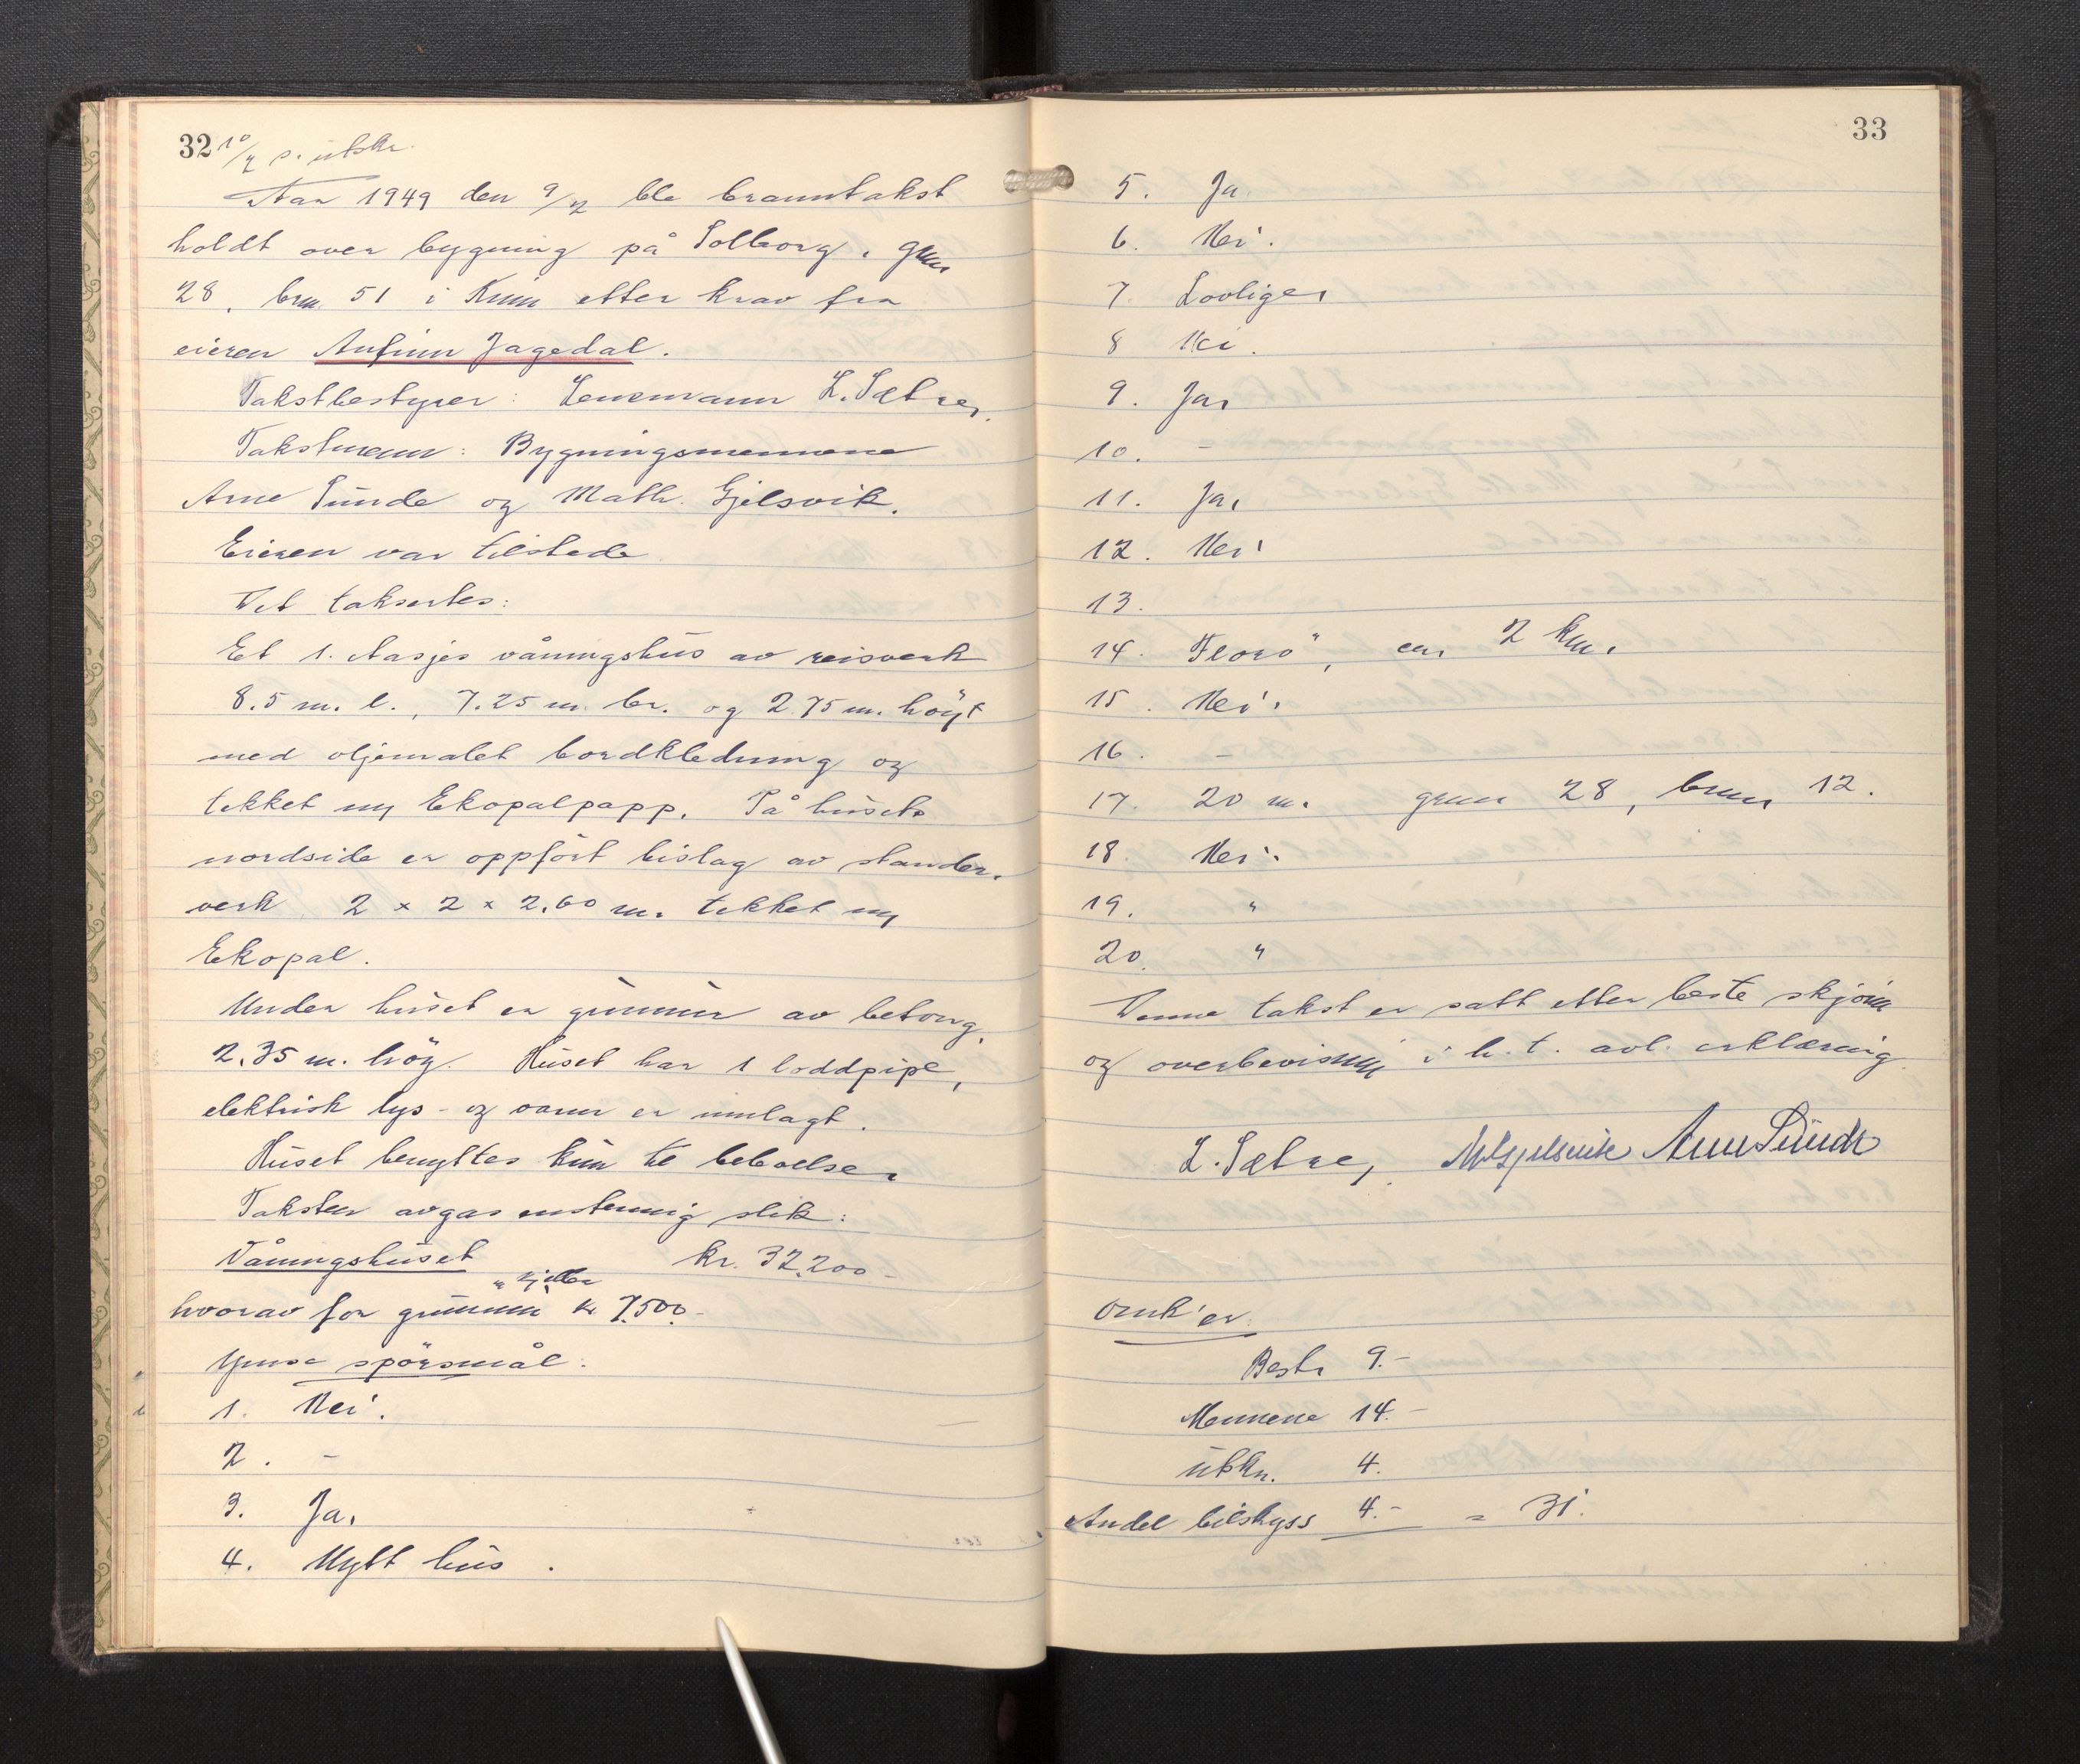 32 10/2 s. utskr.
Aar 1949 den 9/2 ble branntakst
holdt over bygning på Solborg, gnr
28, brn. 51 i Kinn etter krav fra
eieren Anfinn Jagedal.
Takstbestyrer: Lensmann L. Sætre,
Takstmenn: Bygningsmennene
Arne Sunde og Math. Gjelsvik.
Eieren var tilstede
Det taksertes:
Et 1. etasjes våningshus av reisverk
8.5 m. l., 7.25 m. br. og 2.75 m. höyt
med oljemalet bordkledning og
tekket m/ Ekopalpapp. På husets
nordside er oppfört bislag av stender-
verk 2 x 2 x 2,60 m. tekket m/
Ekopal.
Under huset er grunnmur av betong,
2,35 m. hög. Huset har 1 loddpipe,
elektrisk lys- og varme er innlagt.
Huset benyttes kun til beboelse.
Taksten avgas enstemmig slik:
Våningshuset kr. 32.200-
m/kjeller
hvorav for grunnmur kr 7.500.-
Ymse spörsmål.
1. Nei.
2. -
3. Ja.
4. Nytt hus.
33
5. Ja
6. Nei.
7. Lovlige,
8 Nei.
9. Ja,
10. -
11. Ja,
12. Nei
13.
14. Florö, ca. 2 km.
15. Nei.
16. -
17. 20 m. gnr 28, bnr 12.
18. Nei.
19. "
20. "
Denne takst er satt etter beste skjönn
og overbevisning i h. t. avl. erklæring.
L. Sætre, M Gjelsvik Arne Sunde
Omk'er.
Best. 9.-
Mennene 14.-
utskr. 4.
Andel bilskyss 4.- = 31.